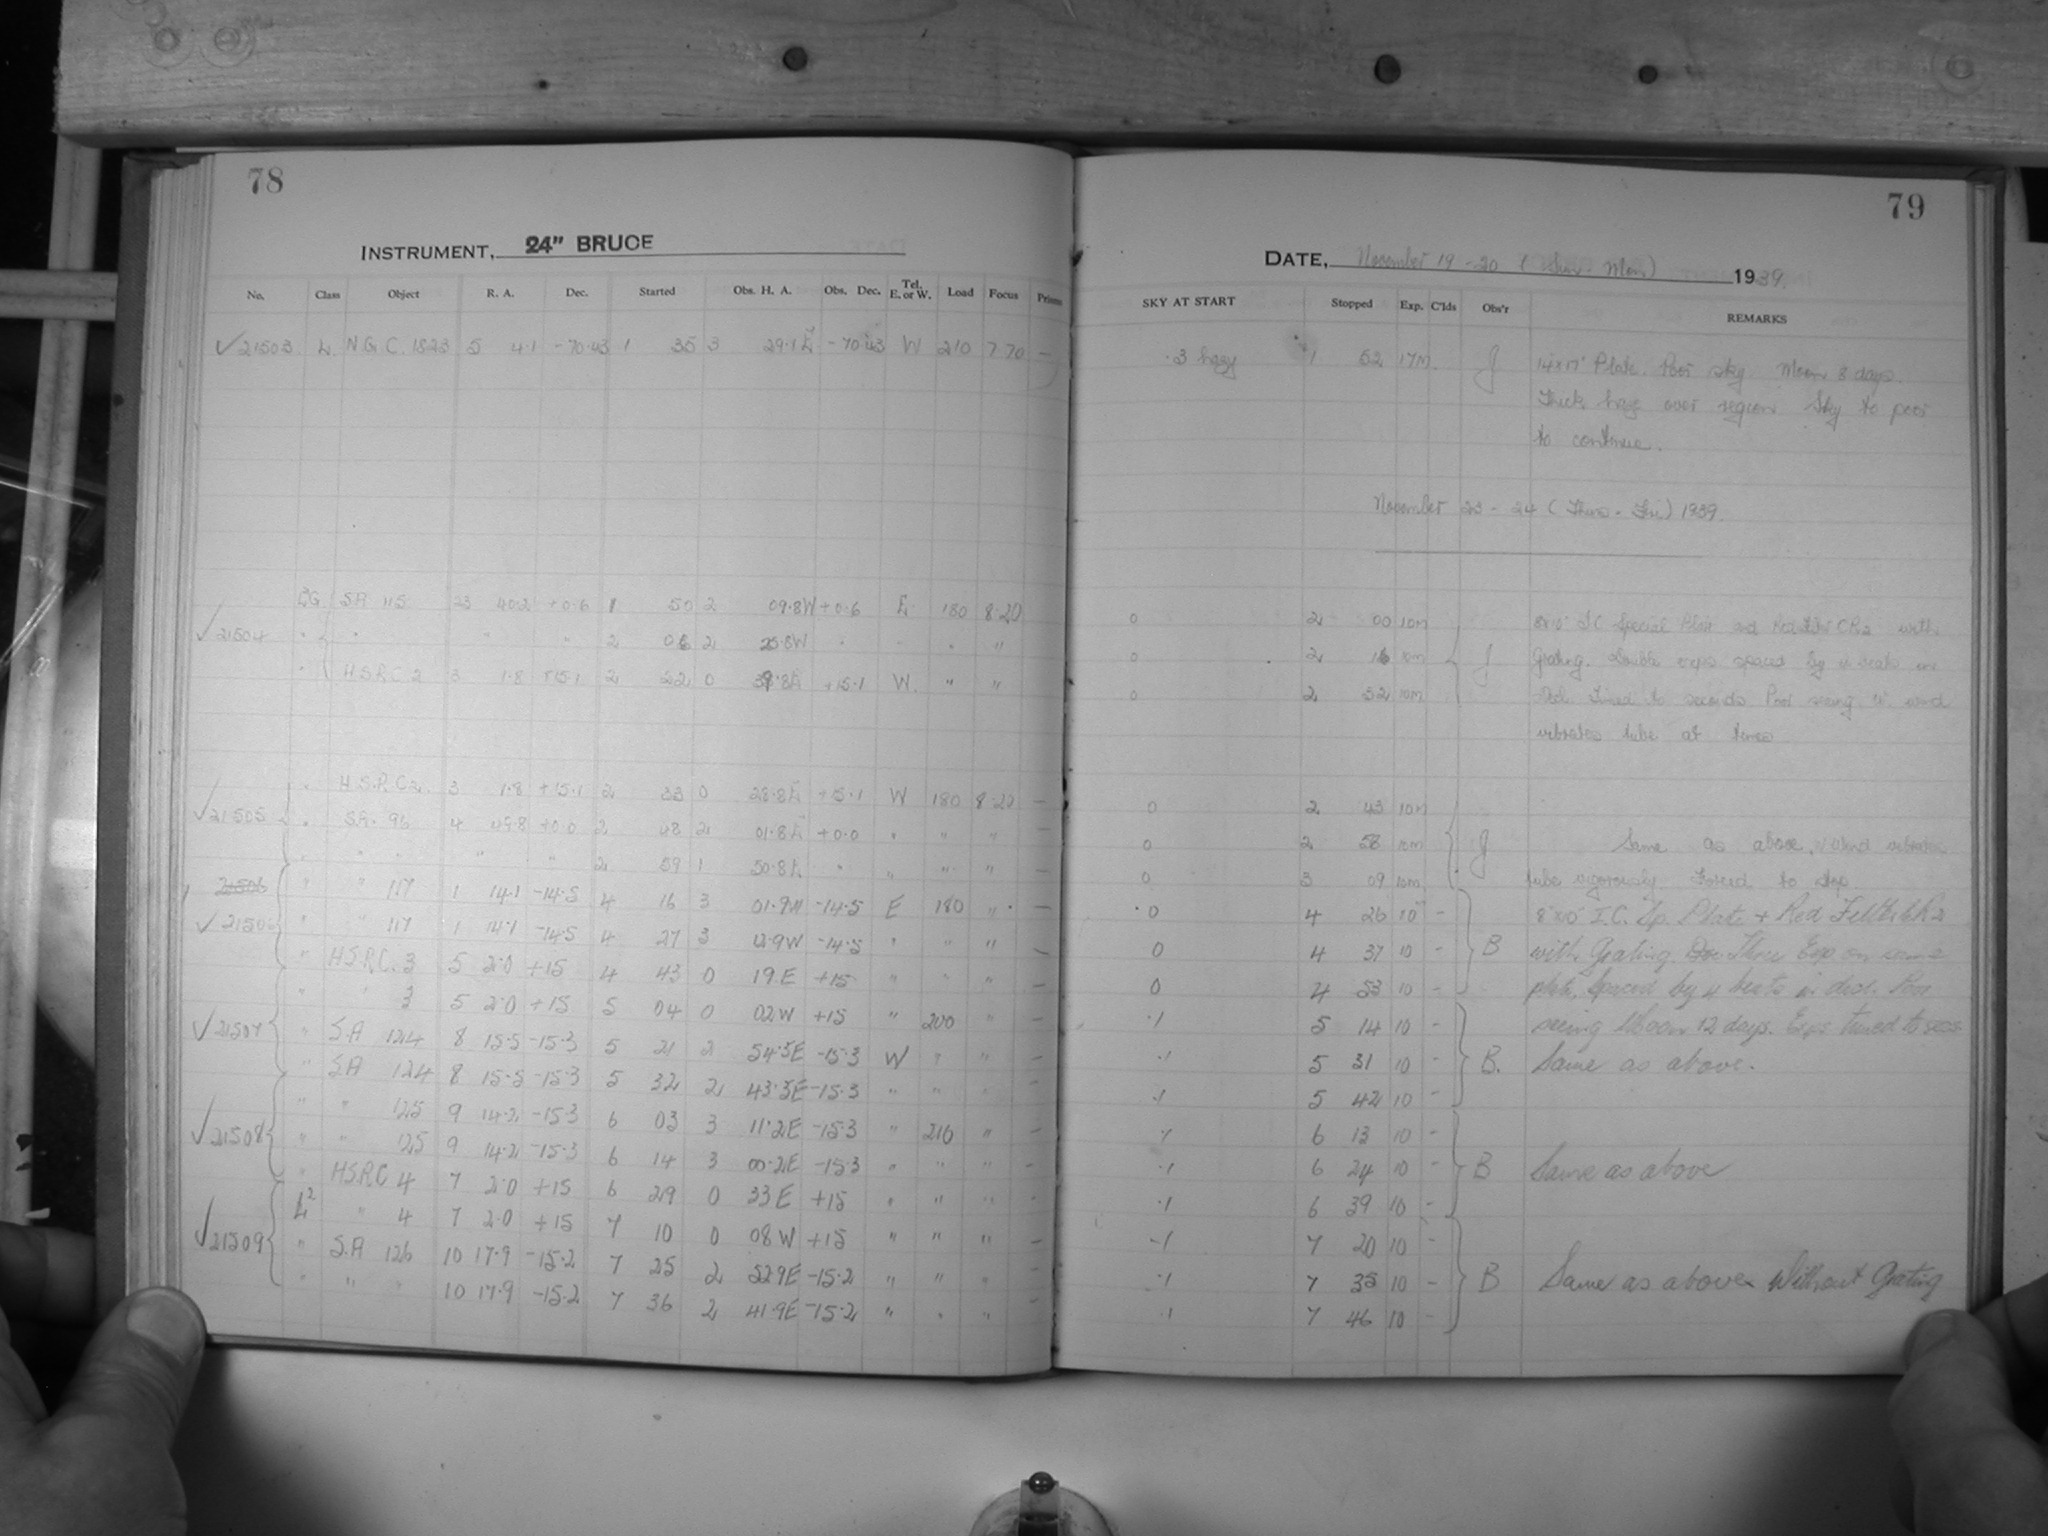 78
INSTRUMENT, 24" BRUCE
No. Class Object R. A. Dec. Started Obs. H. A. Obs. Dec. Tel. E. or W. Load Focus Prism
✓21503 L N.G.C. 1823 5 4.1 -70.43 1 35 3 29.1E -70.43 W 210 7.70 —
SA 115 23 40.2 +0.6 1 50 2 09.8W +0.6 E 180 8.20
✓21504 " " " " 2 06 2 25.8W " " " "
" H.S.R.C 2 3 1.8 +15.1 2 22 0 39.8E +15.1 W. " "
" H.S.R.C 2. 3 1.8 +15.1 2 33 0 28.8E +15.1 W 180 8.20 —
✓21505 " SA. 96 4 49.8 +0.0 2 48 2 01.8E +0.0 " " " —
" " " " " 2 59 1 50.8E " " " " —
" " 117 1 14.1 -14.5 4 16 3 01.9W -14.5 E 180 " —
✓21506 " " 117 1 14.1 -14.5 4 27 3 12.9W -14.5 " " " —
" H.S.R.C. 3 5 2.0 +15 4 43 0 19.E +15 " " " —
" " 3 5 2.0 +15 5 04 0 02W +15 " 200 " —
✓21507 " S.A 124 8 15.5 -15.3 5 21 2 54.5E -15.3 W " " —
" S.A 124 8 15.5 -15.3 5 32 2 43.5E -15.3 " " " —
" " 125 9 14.2 -15.3 6 03 3 11.2E -15.3 " 210 " —
✓21508 " " 125 9 14.2 -15.3 6 14 3 00.2E -15.3 " " " —
" H.S.R.C 4 7 2.0 +15 6 29 0 33E +15 " " " —
L² " 4 7 2.0 +15 7 10 0 08W +15 " " " —
✓21509 " S.A 126 10 17.9 -15.2 7 25 2 52.9E -15.2 " " " —
" " " 10 17.9 -15.2 7 36 2 41.9E -15.2 " " " —
79
DATE, November 19-20 (Sun-Mon) 1939.
SKY AT START Stopped Exp. C'lds Obs'r REMARKS
.3 hazy 1 52 17m. J 14x17" Plate. Poor sky Moon 8 days.
Thick haze over region Sky to poor
to continue.
November 23-24 (Thurs-Fri) 1939.
0 2 00 10m 8x10" I.C. Special Plate and Red Filter CR2 with
0 2 16 10m J Grating. Double exps spaced by 4 beats in
0 2 32 10m Dec. Timed to seconds Poor seeing wind
vibrates tube at times
0 2 43 10m
0 2 58 10m J Same as above. Wind vibrates
0 3 09 10m tube vigorously. Forced to stop.
0 4 26 10 - 8"x10" I.C. Sp. Plate + Red Filter
0 4 37 10 - B with Grating Three Exp on same
0 4 53 10 - plate, Spaced by 4 beats in dec. Poor
.1 5 14 10 - seeing Moon 12 days. Exps timed to secs
.1 5 31 10 - B. Same as above.
.1 5 42 10 -
.1 6 13 10 -
.1 6 24 10 - B Same as above
.1 6 39 10 -
.1 7 20 10 -
.1 7 35 10 - B Same as above Without Grating
.1 7 46 10 -